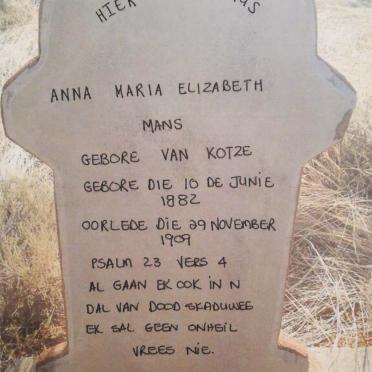 HIER
ANNA MARIA ELIZABETH
MANS
GEBORE VAN KOTZE
GEBORE DIE 10 DE JUNIE
1882
OORLEDE DIE 29 NOVEMBER
1909
PSALM 23 VERS 4
AL GAAN EK OOK IN N
DAL VAN DOOD SKADUWEE
EK SAL GEEN ONHEIL
VREES NIE.